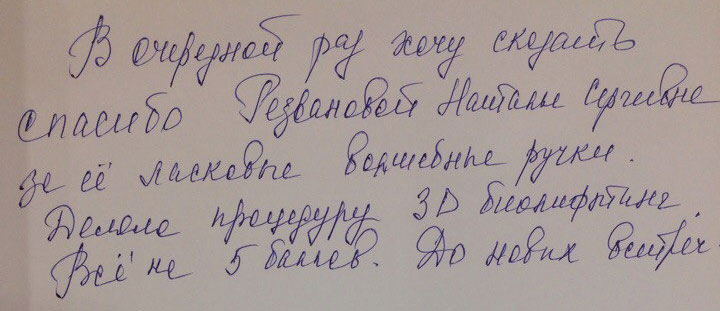 В очередной раз хочу сказать
спасибо Резвановой Наталье Сергеевне
за её ласковые волшебные ручки.
Делала процедуру 3D биолифтинг.
Всё на 5 баллов. До новых встреч.